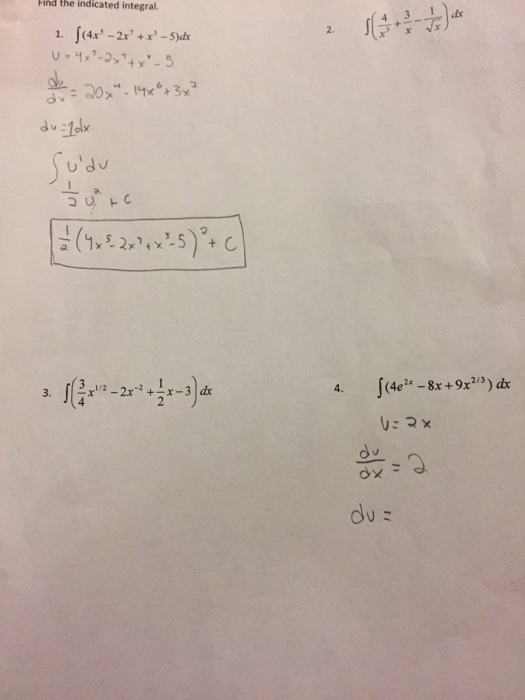 Find the indicated integral.
1. ∫(4x⁵ – 2x⁷ + x³ – 5)dx
U = 4x⁵-2x⁷+x³-5
du/dx = 20x⁴-14x⁶+3x²
du = 1dx
∫u'du
1/2 u² + C
1/2 (4x⁵-2x⁷+x³-5)² + C
2. ∫(4/x³ + 3/x – 1/√x) dx
3. ∫(3/4 x^(1/2) – 2x⁻² + 1/2 x – 3) dx
4. ∫(4e^(2x) – 8x + 9x^(2/3)) dx
U = 2x
du/dx = 2
du =